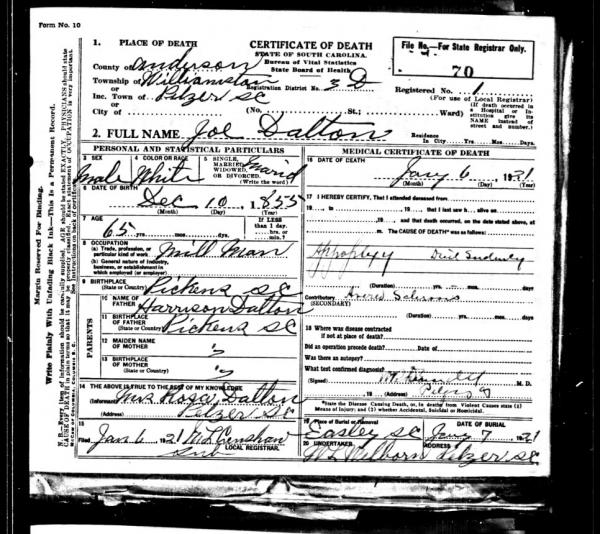 Form No. 10
1. PLACE OF DEATH
County of Anderson
Township of Williamston
or
Inc. Town of Pelzer SC
or
City of
CERTIFICATE OF DEATH
STATE OF SOUTH CAROLINA.
Bureau of Vital Statistics
State Board of Health
Registration District No. 3 D
(No. St.; Ward)
File No.—For State Registrar Only.
70
Registered No. 1
(For use of Local Registrar)
(If death occurred in
a Hospital or In-
stitution give its
NAME instead of
street and number.)
2. FULL NAME Joe Dalton
Residence
In City Yrs. Mos. Days.
PERSONAL AND STATISTICAL PARTICULARS
3 SEX
Male
4 COLOR OR RACE
White
5 SINGLE,
MARRIED,
WIDOWED,
OR DIVORCED.
(Write the word)
Marid
6 DATE OF BIRTH
Dec 10, 1855
(Month) (Day) (Year)
7 AGE
65 yrs. mos. days
If LESS
than 1 day.
hrs. or
min.?
8 OCCUPATION
(a) Trade, profession, or
particular kind of work
Mill Man
(b) General nature of Industry,
business, or establishment in
which employed (or employer)
9 BIRTHPLACE
(State or Country)
Pickens SC
PARENTS
10 NAME OF
FATHER
Harrison Dalton
11 BIRTHPLACE
OF FATHER
(State or Country)
Pickens SC
12 MAIDEN NAME
OF MOTHER
?
13 BIRTHPLACE
OF MOTHER
(State or Country)
?
14 THE ABOVE IS TRUE TO THE BEST OF MY KNOWLEDGE
(Informant) Mrs Rosa Dalton
(Address) Pelzer SC
15
Filed Jan 6, 1921
LOCAL REGISTRAR.
MEDICAL CERTIFICATE OF DEATH
16 DATE OF DEATH
Jany 6, 1921
(Month) (Day) (Year)
17 I HEREBY CERTIFY, That I attended deceased from
19 to 19 that I last saw h alive on
19 and that death occurred, on the date stated above, at
m. The CAUSE OF DEATH* was as follows:
Appoplexy Died Suddenly
(Duration) yrs. mos. days
Contributory
(SECONDARY)
(Duration) yrs. mos. days
18 Where was disease contracted
if not at place of death?
Did an operation precede death? Date of
Was there an autopsy?
What test confirmed diagnosis?
(Signed) M. D.
(Address)
*State the Disease Causing Death, or, in deaths from Violent Causes state (1)
Means of Injury; and (2) whether Accidental, Suicidal or Homicidal.
19 Place of Burial or Removal
Easley SC
DATE OF BURIAL
Jany 7, 1921
20 UNDERTAKER
Welborn
ADDRESS
Pelzer SC
Margin Reserved For Binding.
Write Plainly With Unfading Black Ink—This is a Permanent Record.